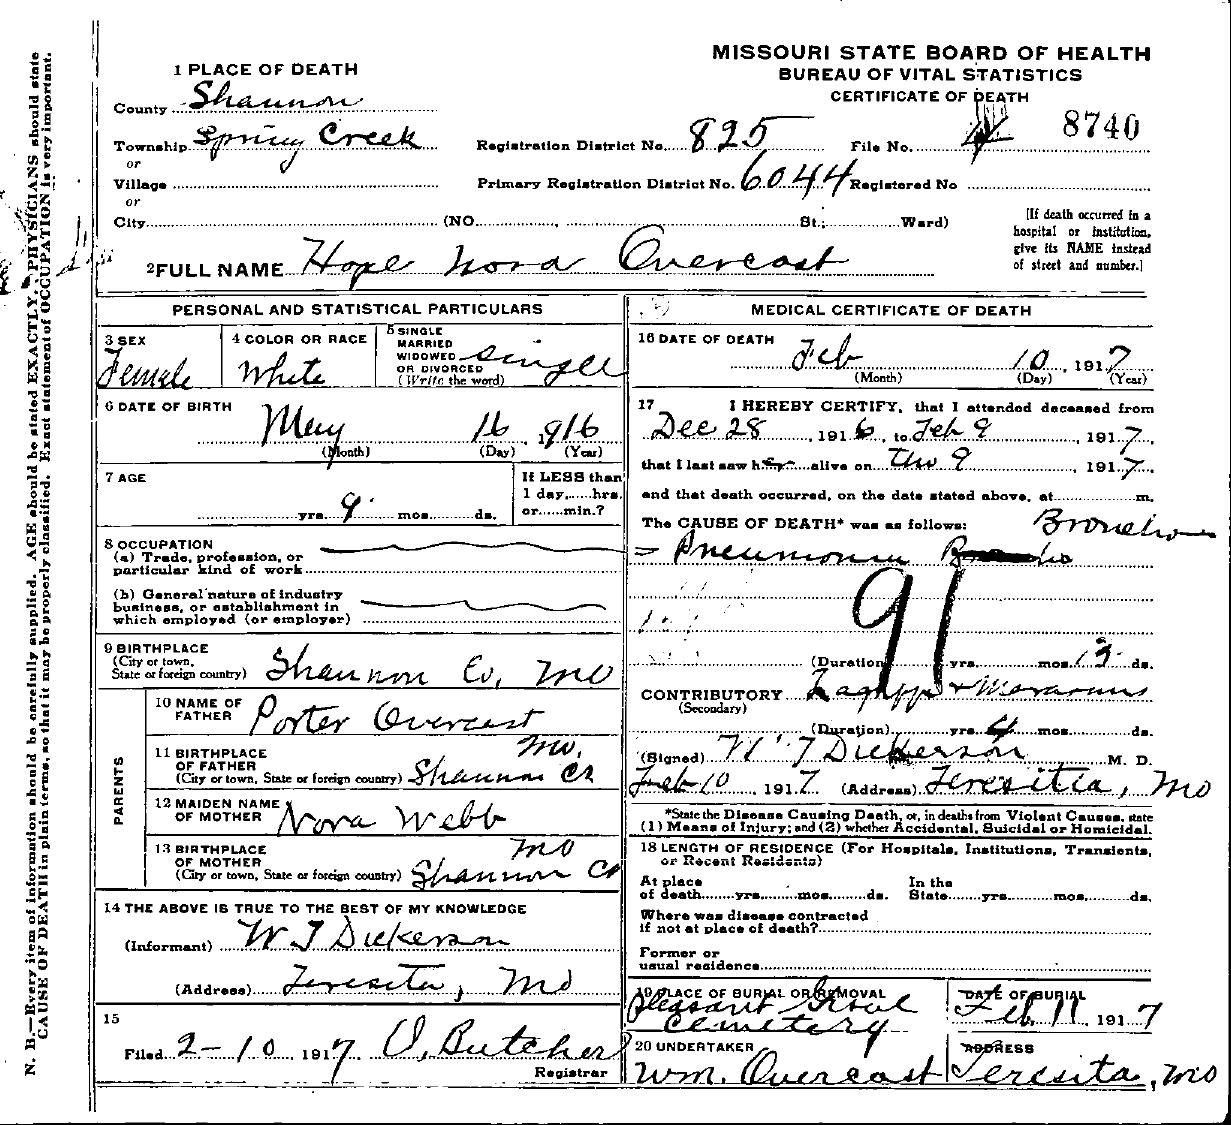 MISSOURI STATE BOARD OF HEALTH
BUREAU OF VITAL STATISTICS
CERTIFICATE OF DEATH
8740
1 PLACE OF DEATH
County Shannon
Township Spring Creek
or
Village
or
City (NO. , St.; Ward)
Registration District No. 825 File No.
Primary Registration District No. 6044 Registered No
[If death occurred in a
hospital or institution,
give its NAME instead
of street and number.]
2 FULL NAME Hope Nora Overcast
PERSONAL AND STATISTICAL PARTICULARS
3 SEX
Female
4 COLOR OR RACE
White
5 SINGLE
MARRIED
WIDOWED
OR DIVORCED
(Write the word)
Single
6 DATE OF BIRTH
May 16, 1916
(Month) (Day) (Year)
7 AGE
yrs. 9 mos. ds.
If LESS than
1 day,......hrs.
or......min.?
8 OCCUPATION
(a) Trade, profession, or
particular kind of work
(b) General nature of industry
business, or establishment in
which employed (or employer)
9 BIRTHPLACE
(City or town,
State or foreign country) Shannon Co, Mo
PARENTS
10 NAME OF
FATHER Porter Overcast
11 BIRTHPLACE
OF FATHER
(City or town, State or foreign country) Shannon Co Mo.
12 MAIDEN NAME
OF MOTHER Nora Webb
13 BIRTHPLACE
OF MOTHER
(City or town, State or foreign country) Shannon Co Mo
14 THE ABOVE IS TRUE TO THE BEST OF MY KNOWLEDGE
(Informant) W J Dickerson
(Address) Teresita, Mo
15
Filed 2-10, 1917 O, Butcher
Registrar
MEDICAL CERTIFICATE OF DEATH
16 DATE OF DEATH Feb 10, 1917
(Month) (Day) (Year)
17 I HEREBY CERTIFY, that I attended deceased from
Dec 28, 1916, to Feb 9, 1917,
that I last saw her alive on 9, 1917,
and that death occurred, on the date stated above, at m.
The CAUSE OF DEATH* was as follows: Broncho
= Pneumonia
91
(Duration) yrs. mos. ds.
CONTRIBUTORY Lagrippe + Marasmus
(Secondary)
(Duration) yrs. 4 mos. ds.
(Signed) W J Dickerson M. D.
Feb 10 1917 (Address) Teresitia, Mo
*State the Disease Causing Death, or, in deaths from Violent Causes, state
(1) Means of Injury; and (2) whether Accidental, Suicidal or Homicidal.
18 LENGTH OF RESIDENCE (For Hospitals, Institutions, Transients,
or Recent Residents)
At place
of death......yrs......mos......ds.
In the
State......yrs......mos......ds.
Where was disease contracted
if not at place of death?
Former or
usual residence
19 PLACE OF BURIAL OR REMOVAL
Pleasant Grove
Cemetery
DATE OF BURIAL
Feb, 11 1917
20 UNDERTAKER
Wm. Overcast
ADDRESS
Teresita, Mo
N. B.—Every item of information should be carefully supplied. AGE should be stated EXACTLY. PHYSICIANS should state
CAUSE OF DEATH in plain terms, so that it may be properly classified. Exact statement of OCCUPATION is very important.